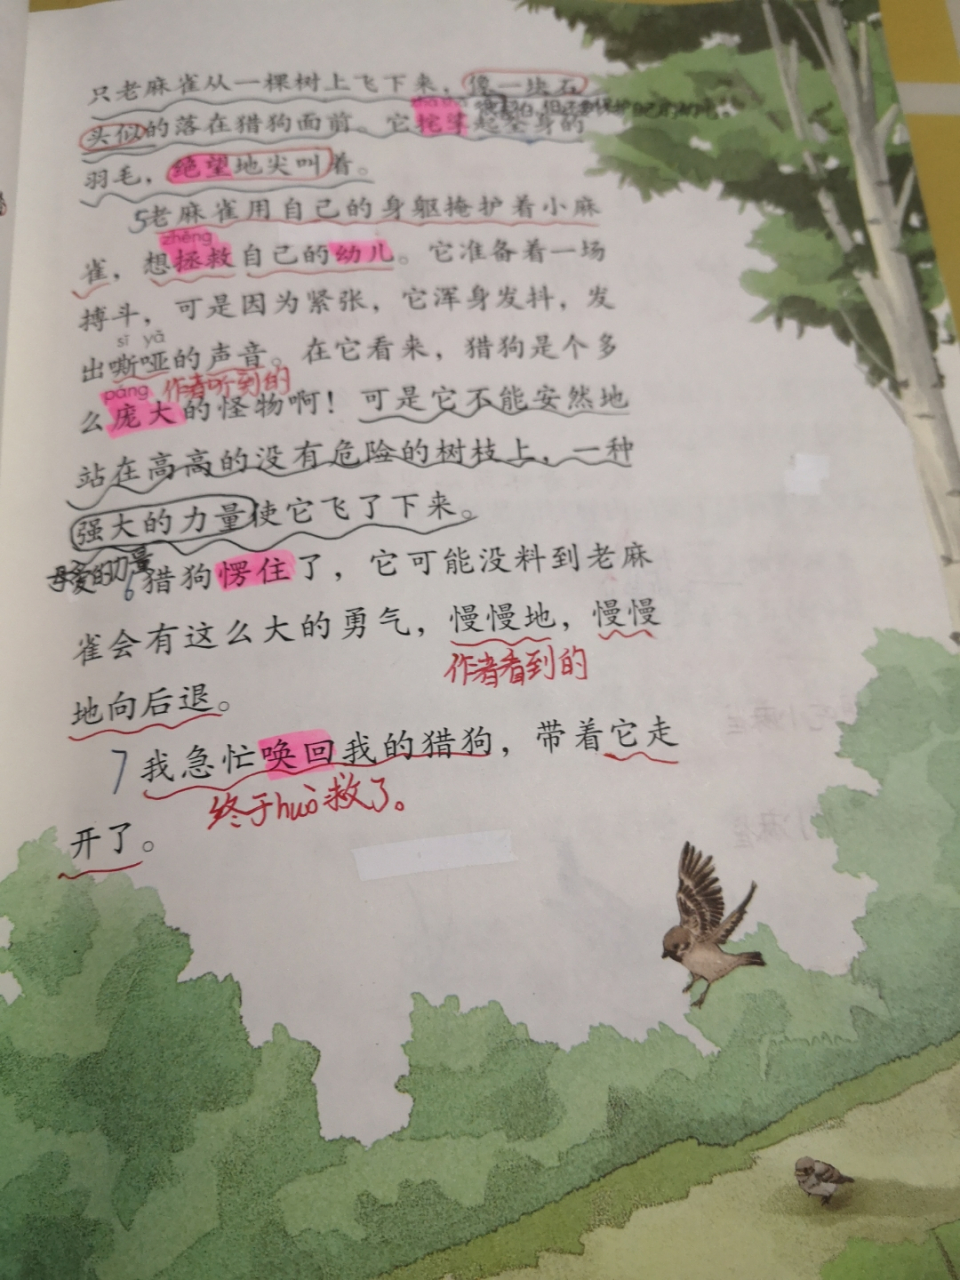 只老麻雀从一棵树上飞下来，像一块石
头似的落在猎狗面前。它挓挲起全身的
羽毛，绝望地尖叫着。
5老麻雀用自己的身躯掩护着小麻
zhěng
雀，想拯救自己的幼儿。它准备着一场
搏斗，可是因为紧张，它浑身发抖，发
sī yǎ
出嘶哑的声音。在它看来，猎狗是个多
páng 作者听到的
么庞大的怪物啊！可是它不能安然地
站在高高的没有危险的树枝上，一种
强大的力量使它飞了下来。
母爱的力量
6猎狗愣住了，它可能没料到老麻
雀会有这么大的勇气，慢慢地，慢慢
作者看到的
地向后退。
7我急忙唤回我的猎狗，带着它走
终于huò救了。
开了。